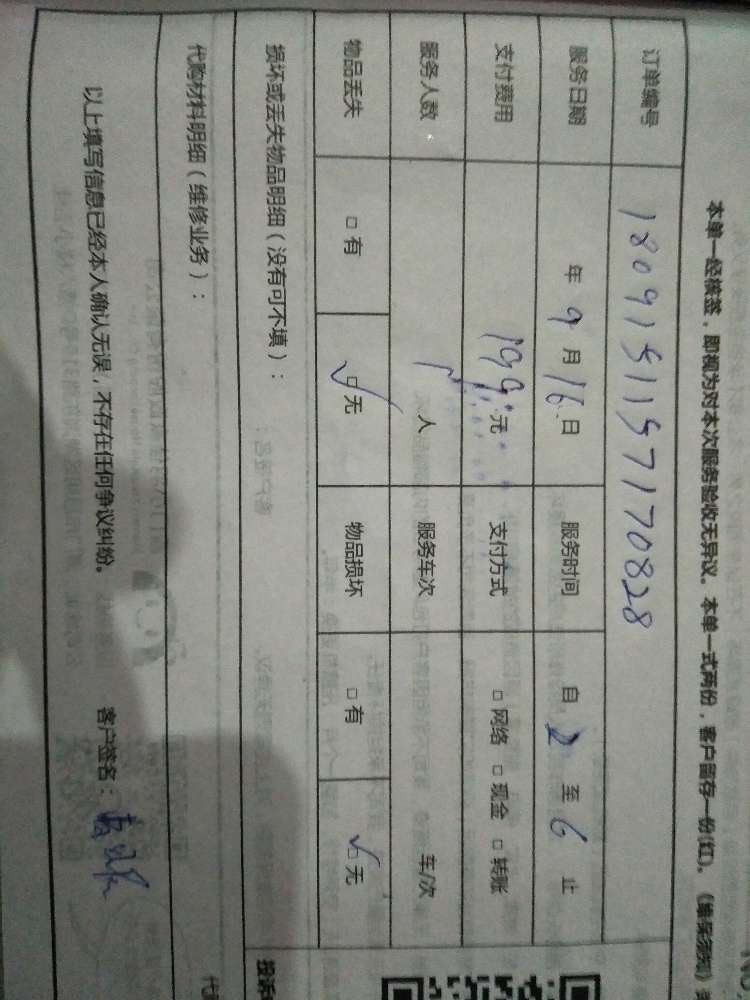 本单一经核签，即视为对本次服务验收无异议。本单一式两份，客户留存一份(红)。
订单编号 180915115717 0828
服务日期 年 9 月 16 日 服务时间 自 2 至 6 止
支付费用 199 元 支付方式 □ 网络 □ 现金 □ 转账
服务人数 1 人 服务车次 车/次
物品丢失 □ 有 ☑ 无 物品损坏 □ 有 ☑ 无
损坏或丢失物品明细（没有可不填）：
代购材料明细（维修业务）：
以上填写信息已经本人确认无误，不存在任何争议纠纷。 客户签名：